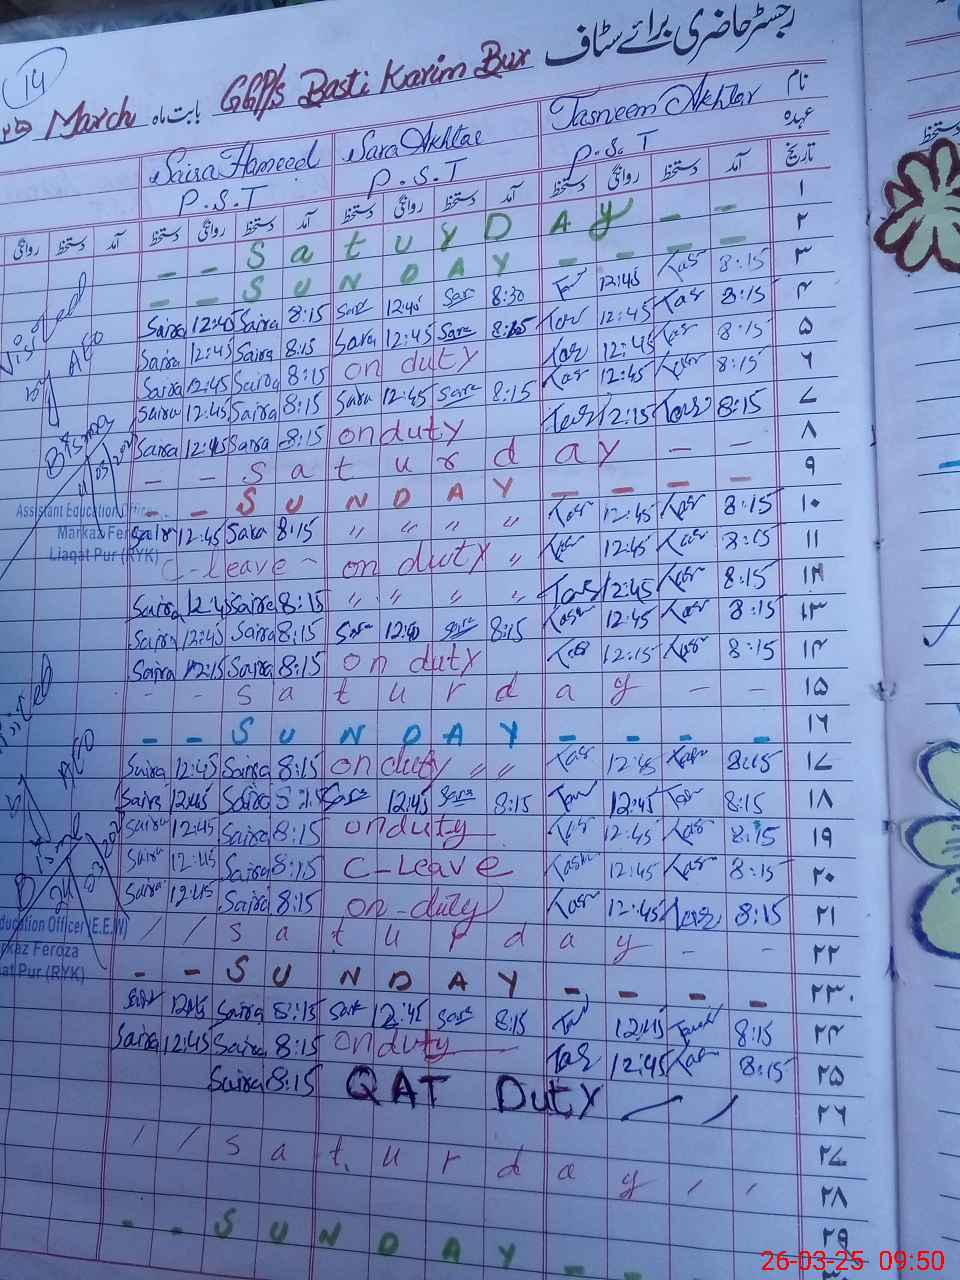 رجسٹر حاضری برائے سٹاف
14
March بابت ماہ GGP/s Basti Karim Bux
نام
Saira Hameed Sara Akhtar Tasneem Akhtar
عہدہ
P.S.T P.S.T P.S.T
روانگی دستخط آمد دستخط روانگی دستخط آمد دستخط روانگی دستخط آمد دستخط روانگی دستخط آمد تاریخ
- - S a t u r D A y - - ۱
- - S U N D A Y - - - - ۲
Saira 12:45 Saira 8:15 Sara 12:45 Sara 8:30 Tas 12:45 Tas 8:15 ۳
Saira 12:45 Saira 8:15 Sara 12:45 Sara 8:15 Tas 12:45 Tas 8:15 ۴
Saira 12:45 Saira 8:15 on duty Tas 12:45 Tas 8:15 ۵
Saira 12:45 Saira 8:15 Sara 12:45 Sara 8:15 Tas 12:45 Tas 8:15 ۶
Saira 12:45 Saira 8:15 on duty Tas 12:15 Tas 8:15 ۷
- - S a t u r d a y - - ۸
- - S U N D A Y - - - - ۹
Saira 12:45 Saira 8:15 " " " " Tas 12:45 Tas 8:15 ۱۰
C-leave - on duty " Tas 12:45 Tas 8:15 ۱۱
Saira 12:45 Saira 8:15 " " " " Tas 12:45 Tas 8:15 ۱۲
Saira 12:45 Saira 8:15 Sara 12:40 Sara 8:15 Tas 12:45 Tas 8:15 ۱۳
Saira 12:15 Saira 8:15 on duty Tas 12:15 Tas 8:15 ۱۴
- - S a t u r d a y - - ۱۵
- - S U N D A Y - - - - ۱۶
Saira 12:45 Saira 8:15 on duty " " Tas 12:45 Tas 8:15 ۱۷
Saira 12:45 Saira 8:15 Sara 12:45 Sara 8:15 Tas 12:45 Tas 8:15 ۱۸
Saira 12:45 Saira 8:15 on duty Tas 12:45 Tas 8:15 ۱۹
Saira 12:45 Saira 8:15 C-Leave Tas 12:45 Tas 8:15 ۲۰
Saira 12:45 Saira 8:15 on-duty Tas 12:45 Tas 8:15 ۲۱
/ / S a t u r d a y - - ۲۲
- - S U N D A Y - - - - ۲۳
Saira 12:45 Saira 8:15 Sara 12:45 Sara 8:15 Tas 12:45 Tas 8:15 ۲۴
Saira 12:45 Saira 8:15 on duty Tas 12:45 Tas 8:15 ۲۵
Saira 8:15 QAT Duty ۲۶
۲۷
/ / S a t u r d a y / / ۲۸
- - S U N D A Y - - ۲۹
Visited
AEO
Assistant Education Office
Markaz Feroza
Liaqat Pur (RYK)
AEO
ducation Officer (E.E.W)
rkaz Feroza
at Pur (RYK)
دستخط
26-03-25 09:50